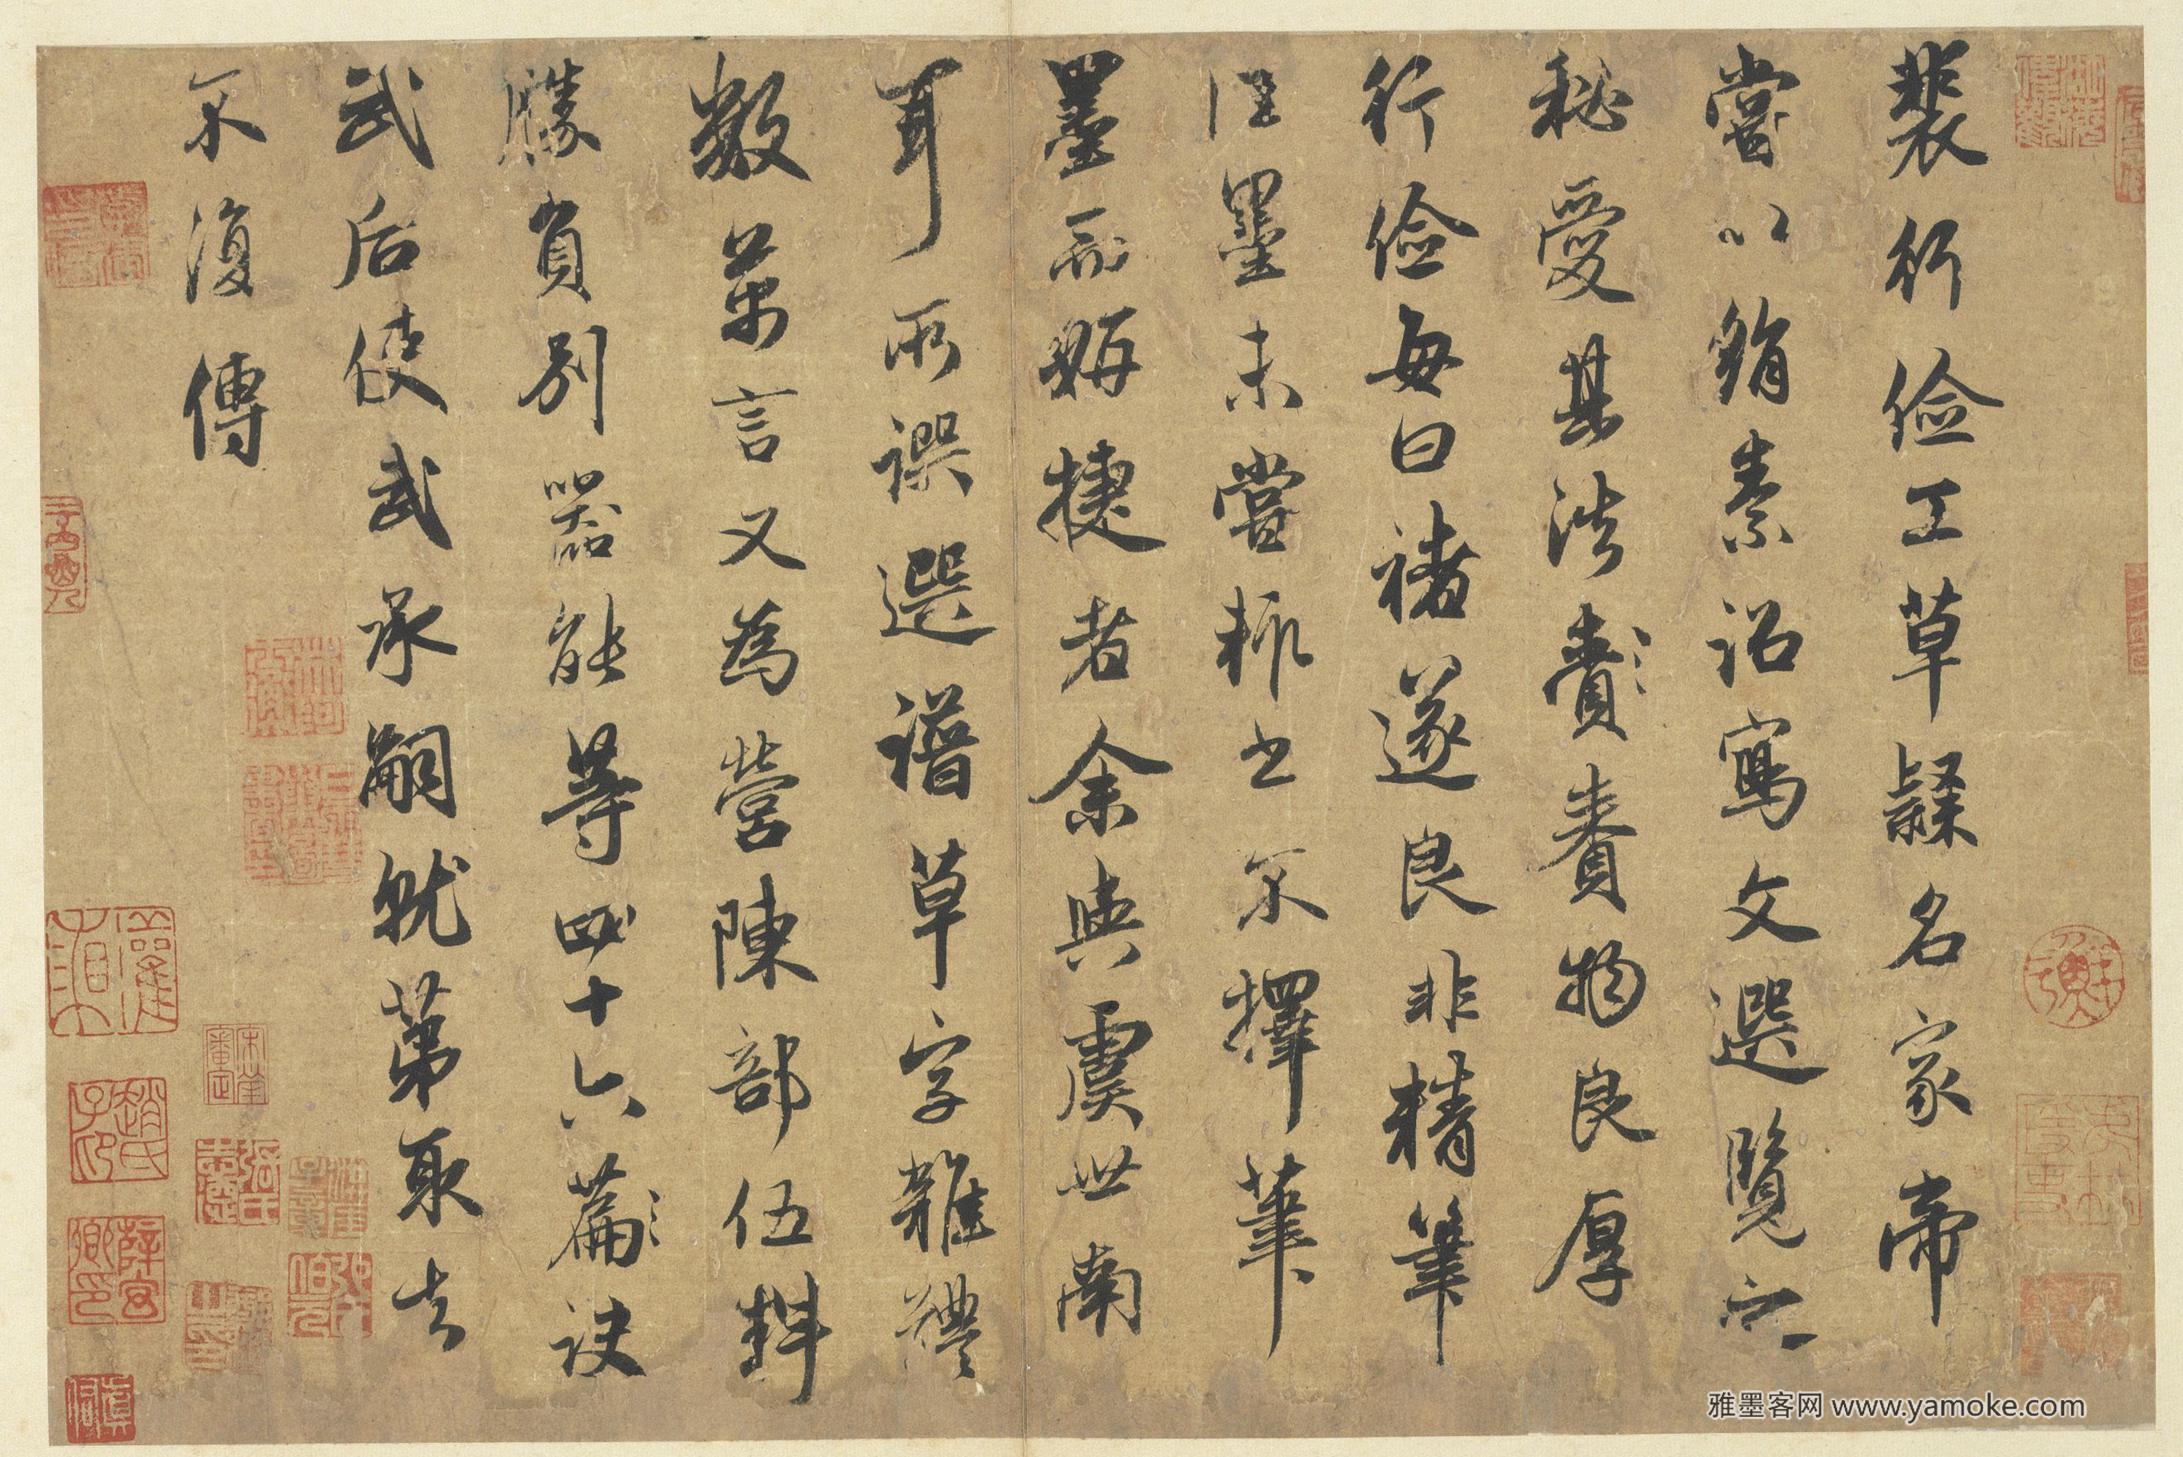 裴行儉工草隸名家帝
嘗以絹素詔寫文選覽之
秘愛其法賚賚物良厚
行儉每曰褚遂良非精筆
佳墨未嘗輒書不擇筆
墨而妍捷者余與虞世南
耳所譔選譜草字雜體
數萬言又為營陳部伍料
勝負別器能等四十六篇訣
武后使武承嗣就第取去
不復傳
宋犖審定
趙氏子印
雅墨客网 www.yamoke.com